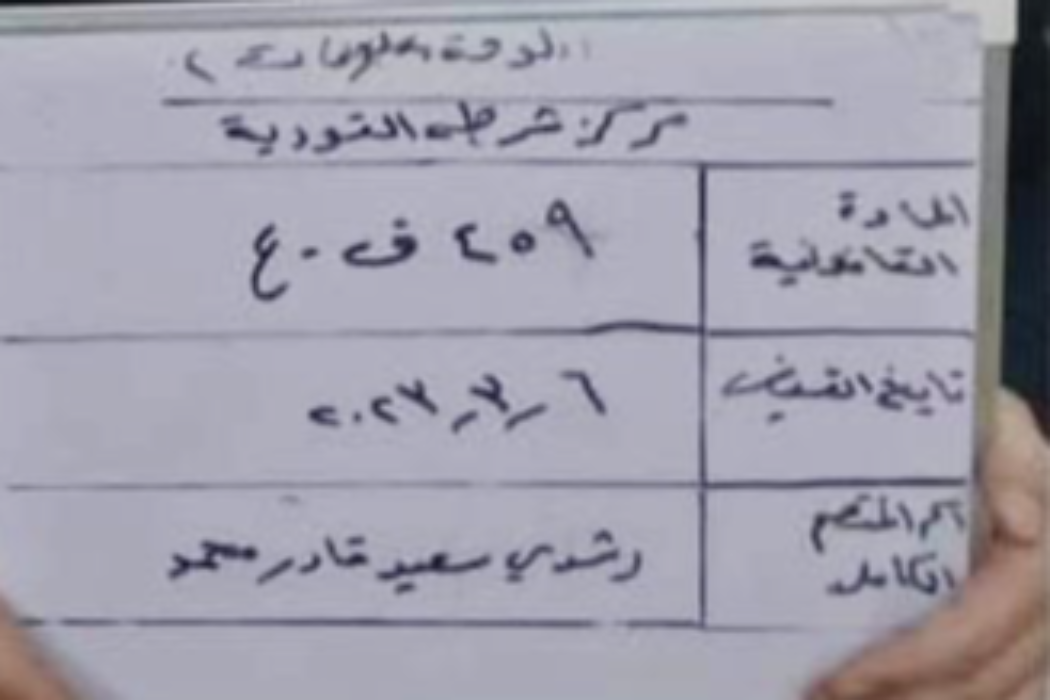 (لوحة معلومات)
مركز شرطة القورية
المادة القانونية
٤٥٩ ق.ع
تاريخ القبض
٦ / ٣ / ٢٠٢٣
اسم المتهم الكامل
رشدي سعيد قادر محمد